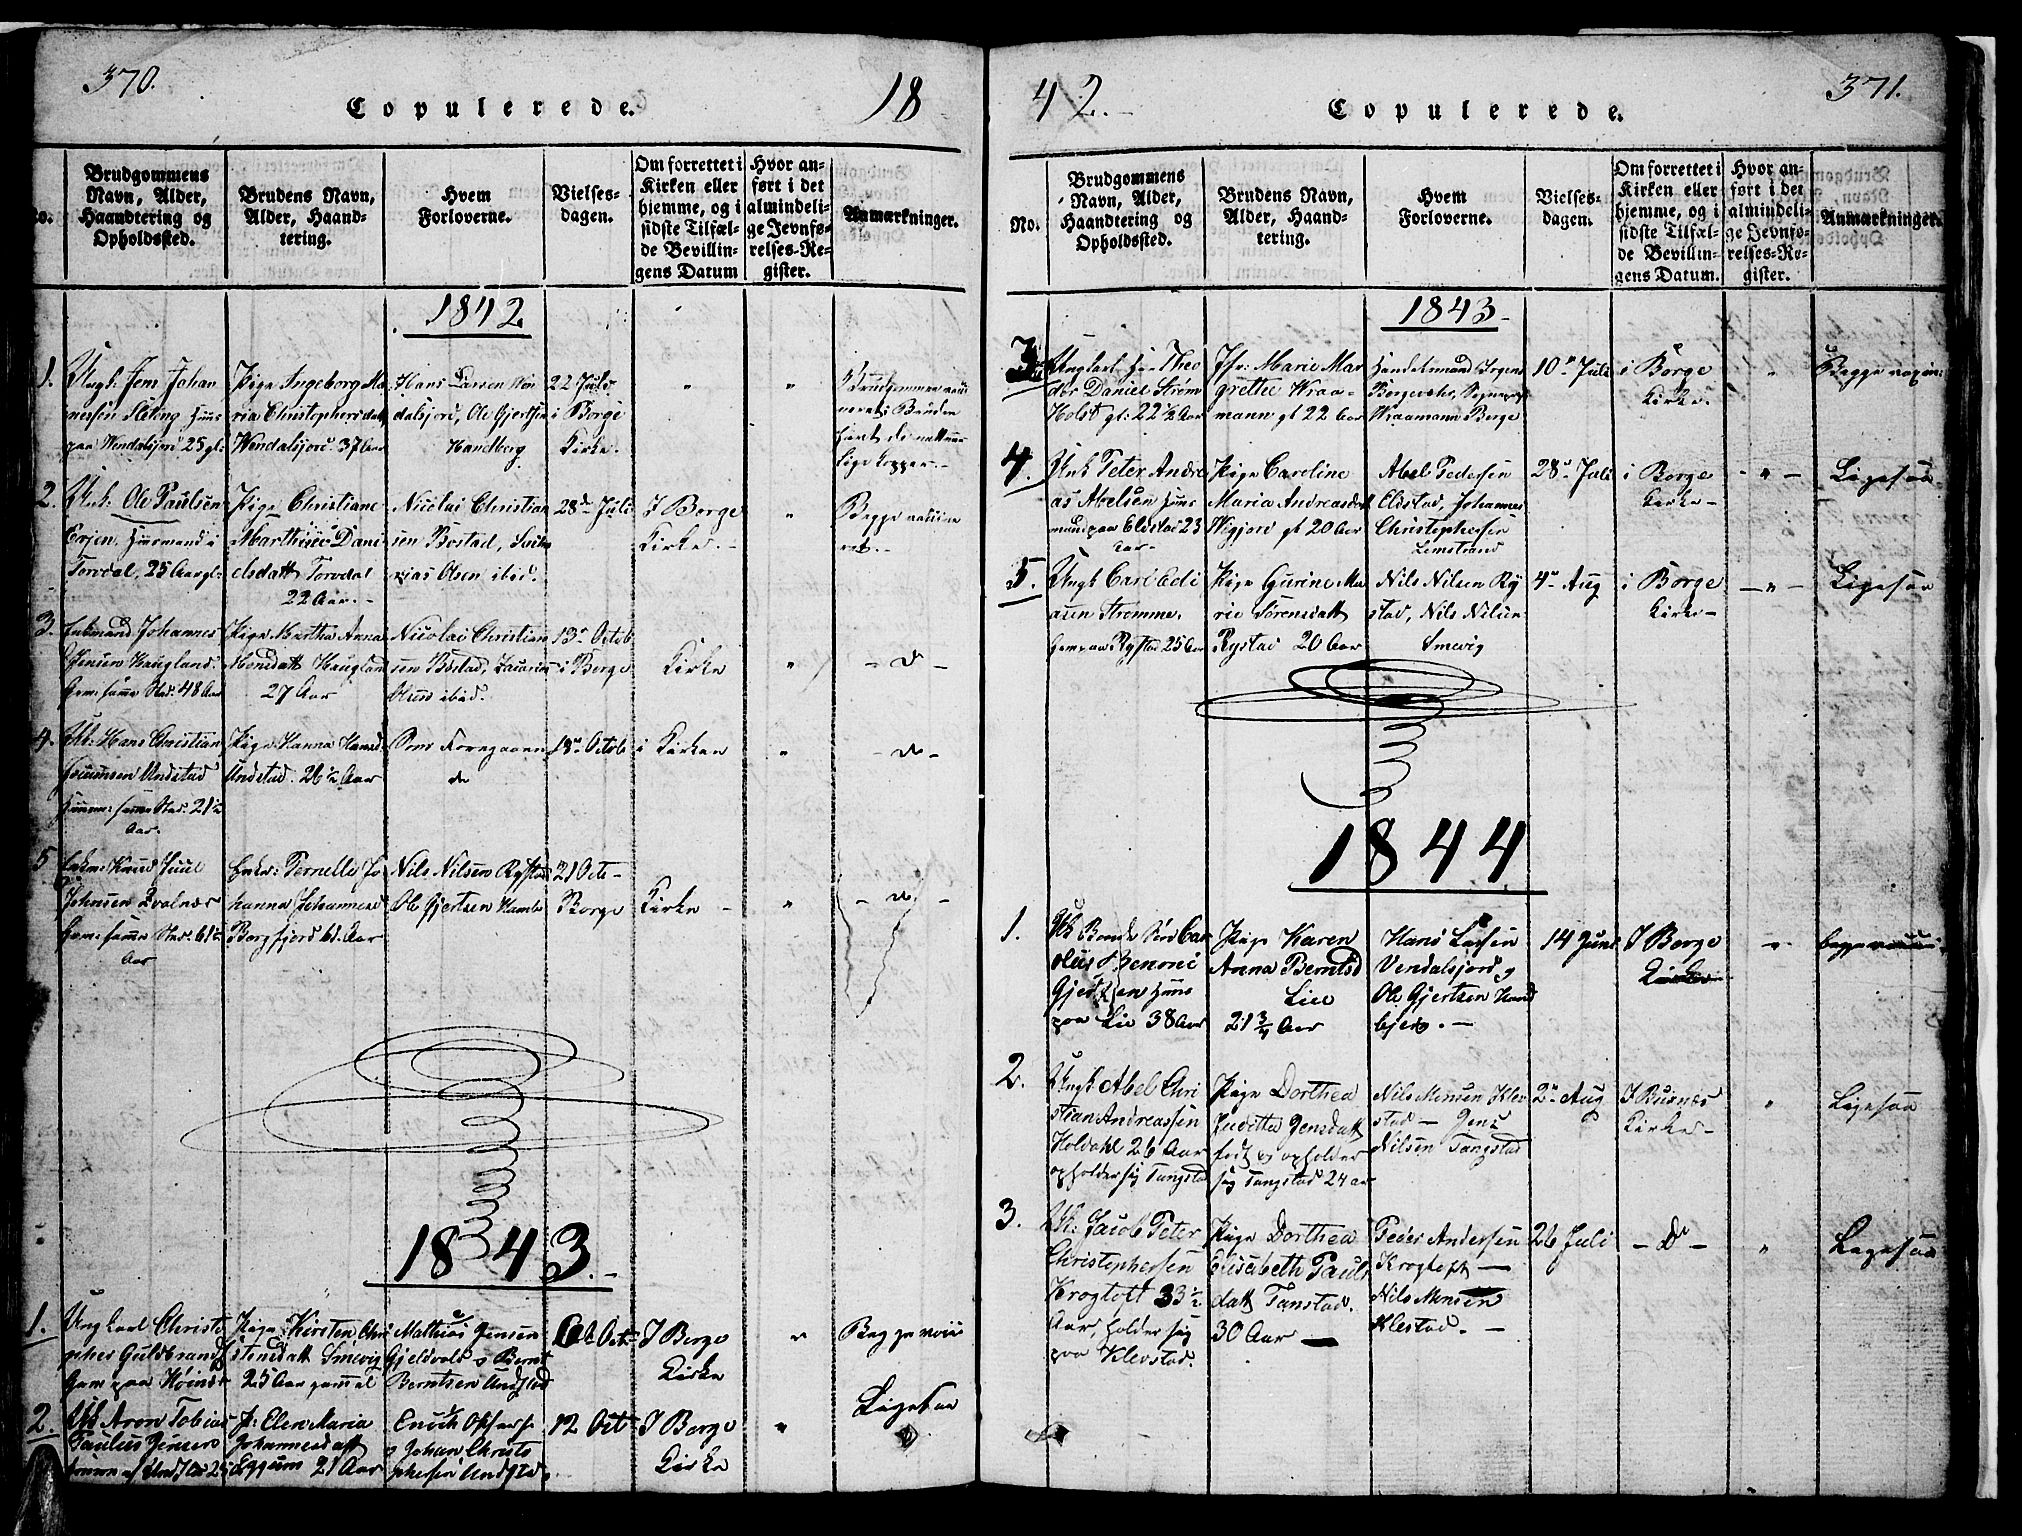 370.
Copulerede.
18
No.
Brudgommens
Navn, Alder,
Haandtering og
Opholdssted.
Brudens Navn,
Alder, Haand-
tering.
Hvem
Forloverne.
Vielses-
dagen.
Om forrettet i
Kirken eller
hjemme, og i
sidste Tilfæl-
de Bevillin-
gens Datum
Hvor an-
ført i det
almindeli-
ge Jevnfø-
relses-Re-
gister.
Anmærkninger.
1842
1.
Ungk: Jens Johan
nessen
paa Wendalsjord 25 gl:
Pige Ingeborg Ma
ria Christophersdatt
Wendalsjord 37 Aar
Hans Larsen Wen
dalsjord, Ole Gjertsen
Handberg
22 Juli
i Borge
Kirke.
"
"
Brudgommen
Bruden
havt de naturlige
Kopper.
2.
Ungk: Ole Paulsen
Huusmand i
Torvdal, 25 Aar gl:
Pige Christiane
Marthine Dani
elsdatt Torvdal
22 Aar.
Nicolai Christian
sen Bostad, Zacha
rias Olsen ibid.
28de Juli
I Borge
Kirke.
"
Begge vaccine
ret.
3.
Enkemand Johannes
Jensen Haugland.
samme Sted. 48 Aar
Pige Martha Anna
Monsdatt Haugland
27 Aar
Nicolai Christian
sen Bostad, Zacarias
Olsen ibid.
13de Octob
i Borge
Kirke
"
- do -
4.
Uk: Hans Christian
Undstad
samme Sted. 21½
Aar.
Pige Hanna Hansd
Undstad. 26½ Aar
Som Foregaaen
de
18de Octob
i Kirken
"
- do -
5.
Enkem: Knud Juul
Johnsen Qvalnæs
samme Sted. 61½
Aar
Enke: Pernelle Jo
hanna Johannesd
Borgfjord 61. Aar
Nils Nilsen Rystad
Ole Gjertsen
21 Octo-
Borge
Kirke -
"
- do -
1843.
1.
Ungkarl Christo
pher Guldbrands
Pige Kirsten Chri
stensdatt Smevig
25 Aar gammel
Mathias Jensen
Gjeldvold & Bernt
Berntsen Undstad
Oct
I Borge
Kirke
"
Begge vacc
2.
Uk Aron Tobias
Paulus Jensen
P: Elen Maria
Johannesdatt
Eggum 21 Aar
Enoch
& Johan Christo
phersen Undstad
12 Oct
I Borge
Kirke
"
Ligesaa
42.
Copulerede.
371.
No.
Brudgommens
Navn, Alder,
Haandtering og
Opholdssted.
Brudens Navn,
Alder, Haand-
tering.
Hvem
Forloverne.
Vielses-
dagen.
Om forrettet i
Kirken eller
hjemme, og i
sidste Tilfæl-
de Bevillin-
gens Datum.
Hvor an-
ført i det
almindeli-
ge Jevnfø-
relses-Re-
gister.
Anmærkninger.
1843
3
Ungkarl Hr Theo
dor Daniel Strøm
Holst gl: 22½ Aar
Jfr. Marie Mar
grethe Wraa-
mann gl 22 Aar
Handelsmand
Wraamann Borge
10de Juli
i Borge
Kirke.
"
Begge vaccin:
4.
Unk Peter Andre
as Abelsen Huus
mand paa Eldstad 23
Aar
Pige Caroline
Maria Andreasdatt
Wigjord gl 20 Aar
Abel Pedersen
Eldstad, Johannes
Christophersen
Limstrand
28de Juli
i Borge
Kirke
- " -
Ligesaa
5.
Ungk Carl Edi
asen Stromme.
paa Rystad 25 Aar
Pige Gurine Ma
rie Sørensdatt
Rystad 20 Aar
Nils Nilsen Ry
stad, Nils Nilsen
Smevig
4de Aug
i Borge
Kirke
- " -
Ligesaa
1844
1.
Uk Bonde Søn Car
olus Benoni
Gjertsen Huus
paa Lie 38 Aar
Pige Karen
Anna Berntsd
Lie
21¾ Aar
Hans Larsen
Vendalsjord, &
Ole Gjertsen Hand
bjerg. -
14 Juni
I Borge
Kirke
"
begge
2.
Ungk Abel Chri
stian Andreassen
Holdahl 26 Aar
opholder sig Tangstad
Pige Dorthea
Juditha Jensdatt
født og opholder
sig Tangstad 24 aar
Nils Monsen Klev
stad - Jens
Nilsen Tangstad
2de Aug
I Buxnæs
Kirke -
"
Ligesaa
3.
Uk: Jacob Peter
Christophersen
Krogtoft 33½
Aar, holder sig
paa Klevstad.
Pige Dorthea
Elisabeth Pauls
datt Tanstad.
30 Aar -
Peder Andersen
Krogtoft -
Nils Monsen
Klestad. -
26 Juli
- Do -
"
Ligesaa